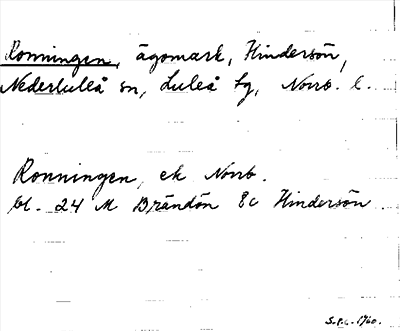 Ronningen, ägomark, Hindersön,
Nederluleå sn, Luleå tg, Norrb. l.
Ronningen, ek Norrb.
bl. 24 M Brändön &c Hindersön.
1960.